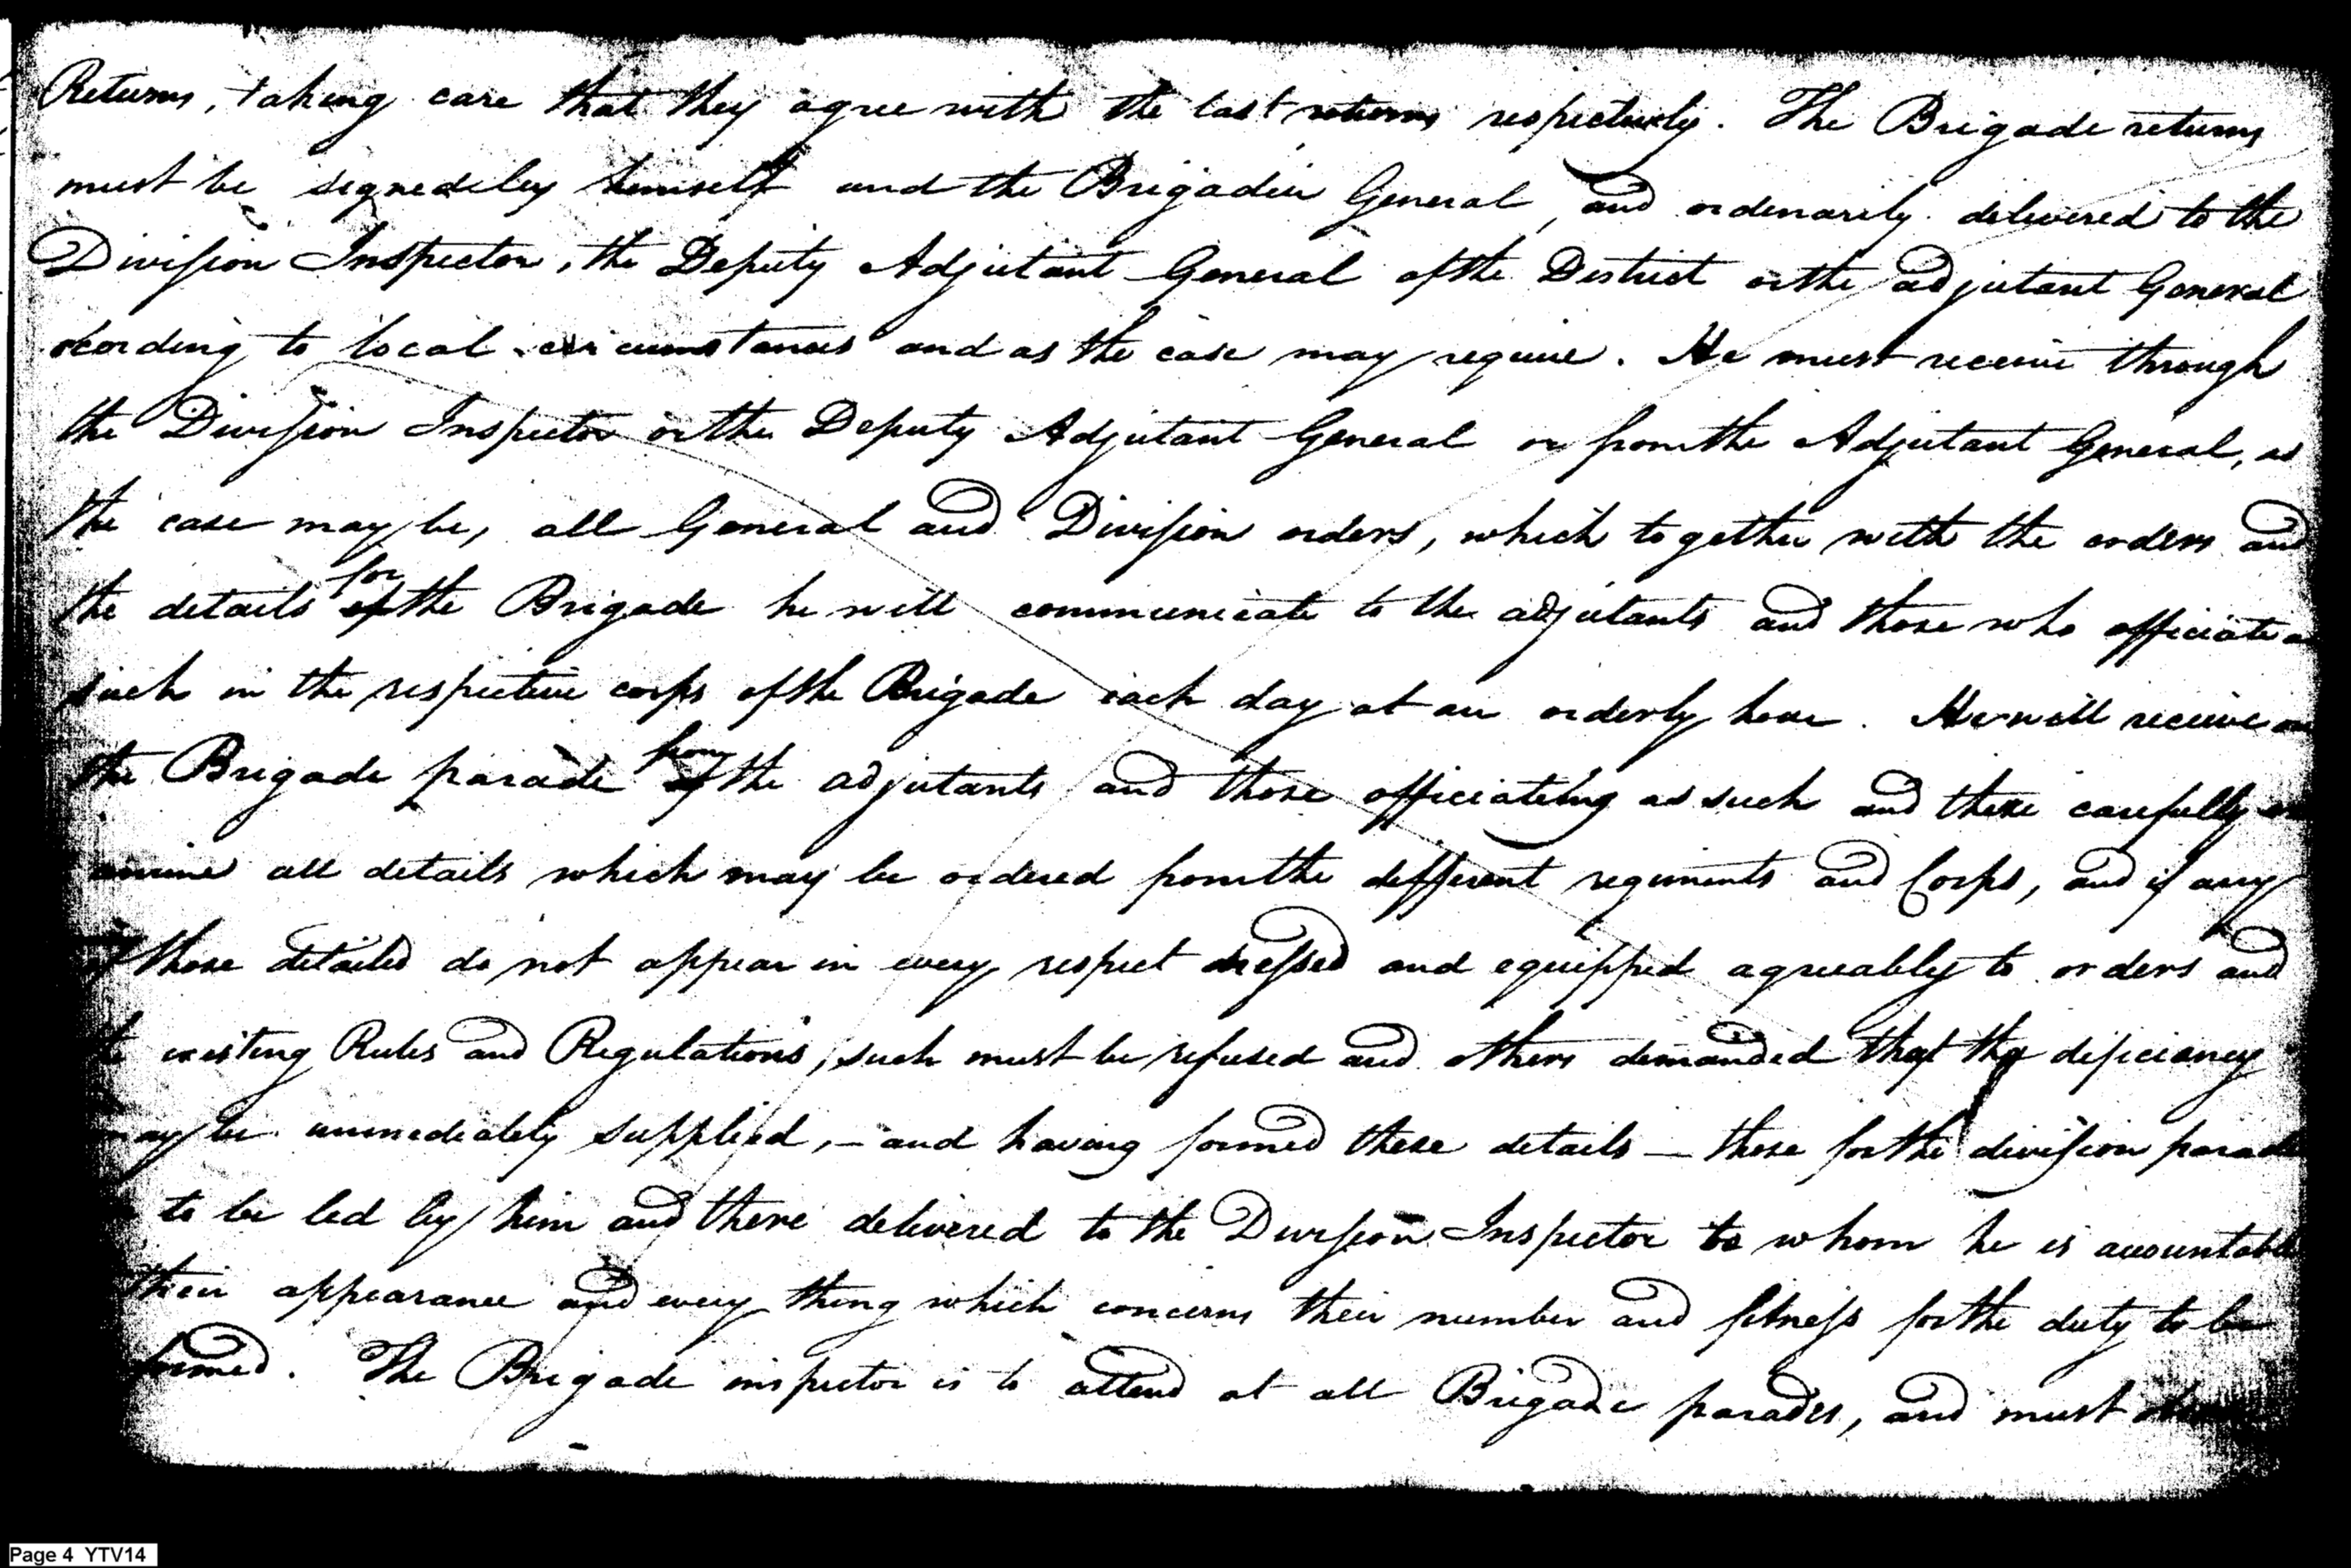 Returns, taking care that they agree with the last returns respectively. The Brigade returns
must be signed by himself and the Brigadier General, and ordinarily delivered to the
Division Inspector, the Deputy Adjutant General of the District or the adjutant General
according to local circumstances and as the case may require. He must receive through
the Division Inspector or the Deputy Adjutant General or from the Adjutant General, as
the case may be, all General and Division orders, which together with the orders and
the details for the Brigade he will communicate to the adjutants and those who officiate as
such in the respective corps of the Brigade each day at an orderly hour. He will receive on
the Brigade parade from the adjutants and those officiating as such and there carefully ex
amine all details which may be ordered from the different regiments and Corps, and if any
of those detailed do not appear in every respect dressed and equipped agreeably to orders and
to existing Rules and Regulations, such must be refused and others demanded that the deficiency
may be immediately supplied, - and having formed these details — those for the division parade
to be led by him and there delivered to the Division Inspector to whom he is accountable
their appearance and every thing which concerns their number and fitness for the duty to be
formed. The Brigade inspector is to attend at all Brigade parades, and must
Page 4 YTV14